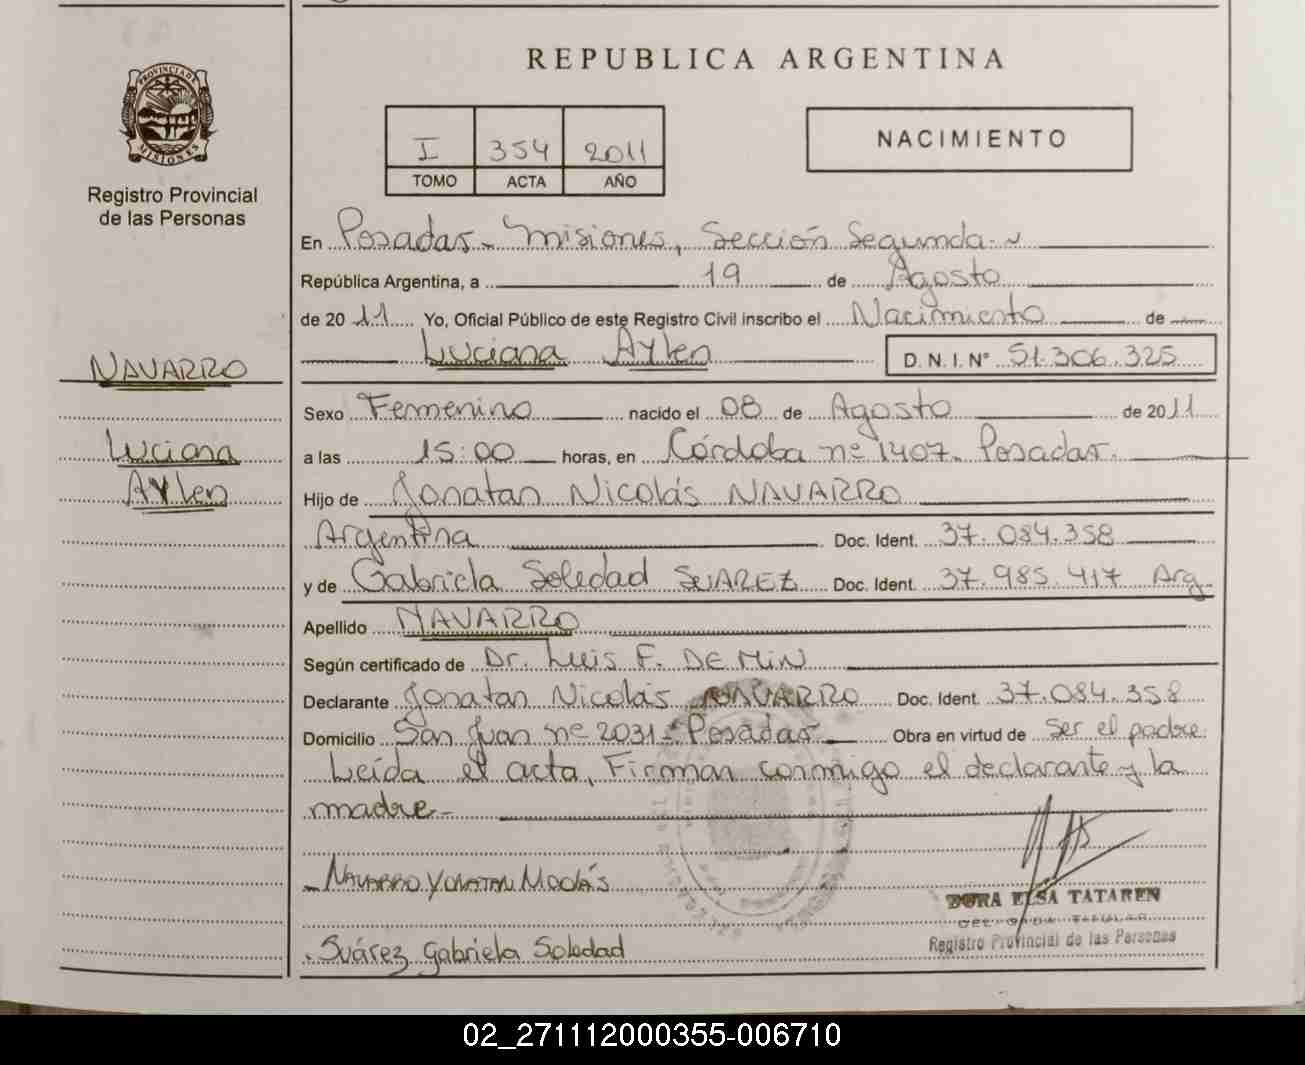 REPUBLICA ARGENTINA
PROVINCIA DE MISIONES
Registro Provincial
de las Personas
I 354 2011
TOMO ACTA AÑO
NACIMIENTO
En Posadas - Misiones, Sección Segunda.
República Argentina, a 19 de Agosto
de 2011 Yo, Oficial Público de este Registro Civil inscribo el Nacimiento de
Luciana Aylen D.N.I.Nº 51.306.325
NAVARRO
Luciana
Aylen
Sexo Femenino nacido el 08 de Agosto de 2011
a las 15:00 horas, en Córdoba nº 1407. Posadas.
Hijo de Jonatan Nicolás NAVARRO
Argentina Doc. Ident. 37.084.358
y de Gabriela Soledad SUAREZ Doc. Ident. 37.985.417 Arg.
Apellido NAVARRO
Según certificado de Dr. Luis F. DE MIN
Declarante Jonatan Nicolás NAVARRO Doc. Ident. 37.084.358
Domicilio San Juan nº 2031 - Posadas Obra en virtud de ser el padre.
Leída el acta, Firman conmigo el declarante y la
madre.-
NAVARRO YONATAN NICOLÁS
DORA ELSA TATAREN
TITULAR
Registro Provincial de las Personas
Suárez Gabriela Soledad
02_271112000355-006710